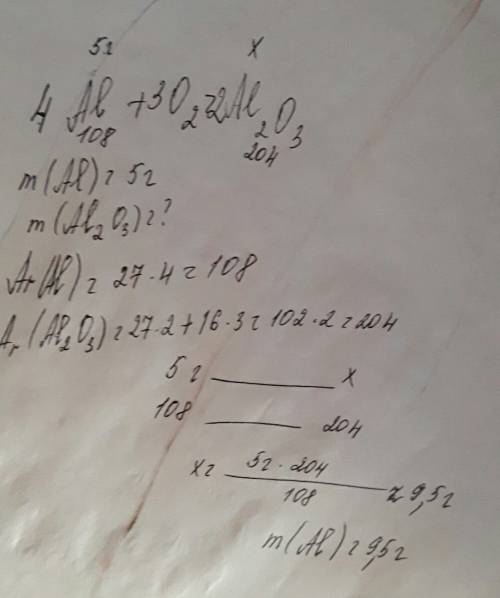 5г x
4 Al + 3O2 = 2Al2O3
108 204
m(Al) = 5г
m(Al2O3) = ?
Ar(Al) = 27·4 = 108
Ar(Al2O3) = 27·2 + 16·3 = 102·2 = 204
5г x
108 204
x = 5г·204
108 ≈ 9,5г
m(Al) = 9,5г